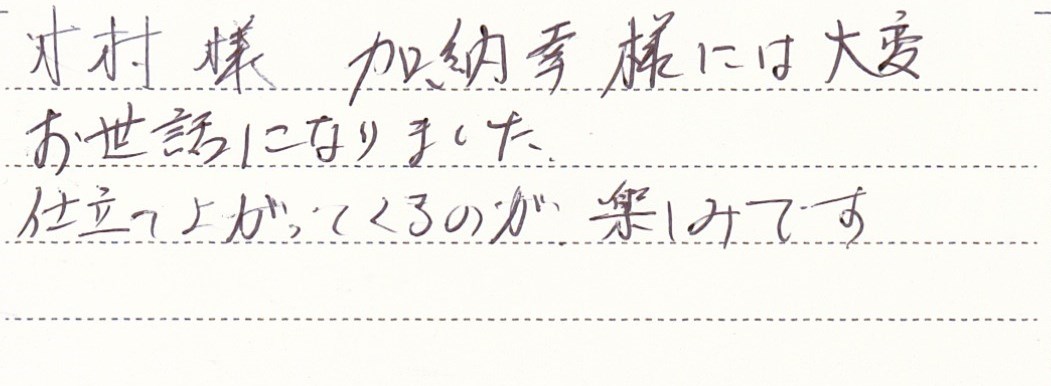 村様 加納幸様には大変
お世話になりました、
仕立て上がってくるのが楽しみです